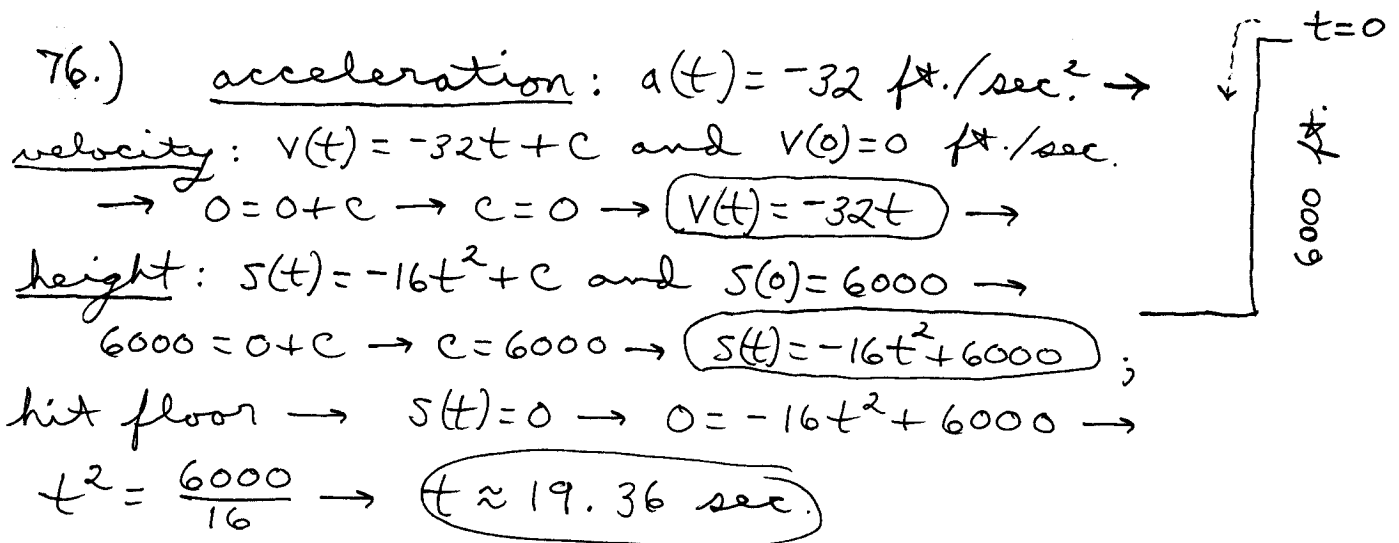 76.) acceleration: a(t) = -32 ft./sec.² →
velocity: v(t) = -32t + C and v(0) = 0 ft./sec.
→ 0 = 0 + C → C = 0 → v(t) = -32t →
height: s(t) = -16t² + C and s(0) = 6000 →
6000 = 0 + C → C = 6000 → s(t) = -16t² + 6000 ;
hit floor → s(t) = 0 → 0 = -16t² + 6000 →
t² = 6000/16 → t ≈ 19.36 sec.
t=0
6000 ft.